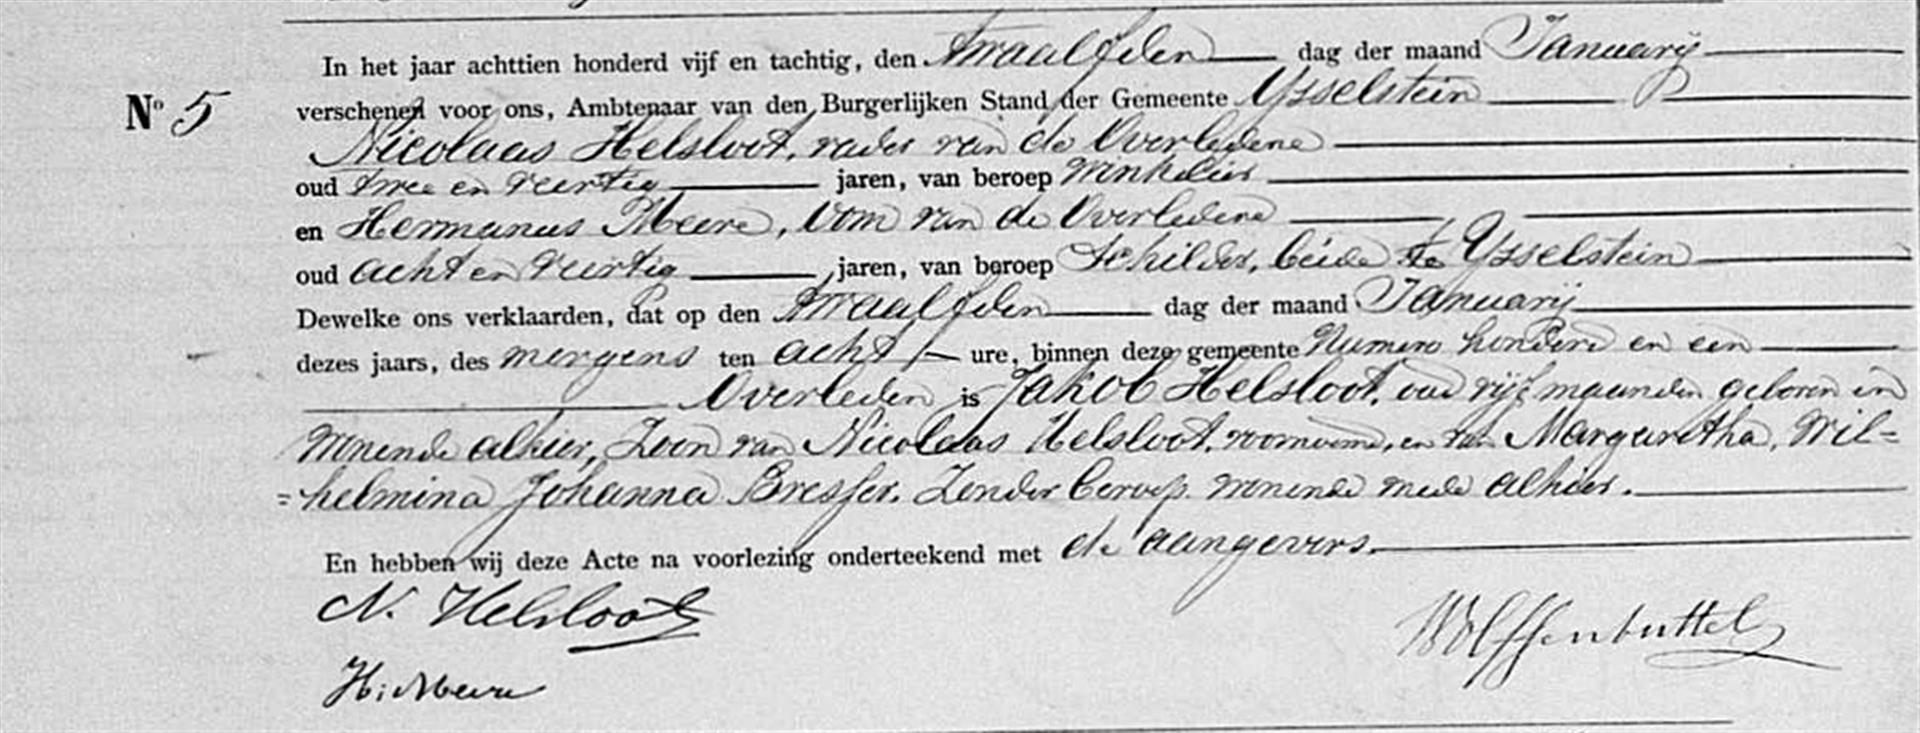 In het jaar achttien honderd vijf en tachtig, den twaalfden dag der maand Januarij
No 5 verschenen voor ons, Ambtenaar van den Burgerlijken Stand der Gemeente IJsselstein
Nicolaas Helsloot, vader van de Overledene
oud twee en veertig jaren, van beroep Winkelier
en Hermanus Meere, Oom van de Overledene
oud acht en veertig jaren, van beroep Schilder, beide te IJsselstein
Dewelke ons verklaarden, dat op den twaalfden dag der maand Januarij
dezes jaars, des morgens ten acht ure, binnen deze gemeente Numero honderd en een
Overleden is Jakob Helsloot, oud vijf maanden geboren en
wonende alhier, Zoon van Nicolaas Helsloot, voornoemd, en van Margaretha, Wil=
=helmina Johanna Bresser, Zonder beroep wonende mede alhier.
En hebben wij deze Acte na voorlezing onderteekend met de aangevers.
N. Helsloot
Wolffenbuttel
H: Meere